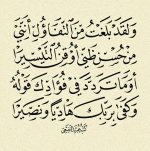 وَلَقَدْ بَلَغْتُ مِنَ التَّفَاؤُلِ أَنَّنِي
مِنْ حُسْنِ ظَنِّي أُوقِنُ التَّيْسِيرَا
أَوَمَا تَرَدَّدَ فِي فُؤَادِكَ قَوْلُهُ
وَكَفَى بِرَبِّكَ هَادِيًا وَنَصِيرًا